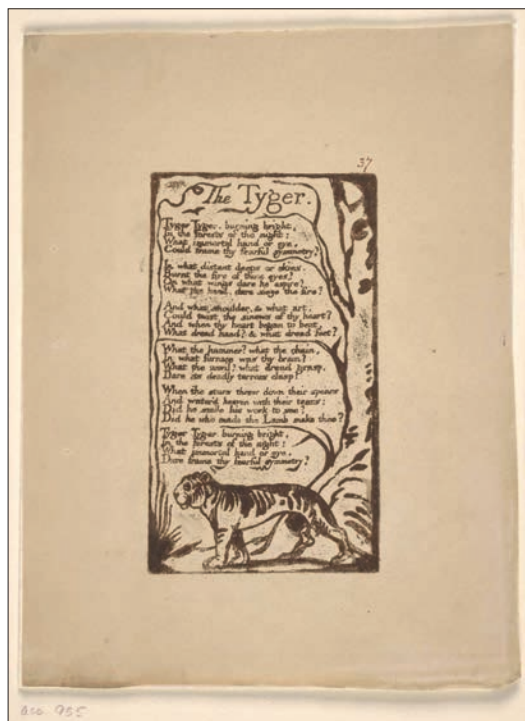 37
The Tyger.
Tyger Tyger, burning bright,
In the forests of the night:
What immortal hand or eye,
Could frame thy fearful symmetry?
In what distant deeps or skies
Burnt the fire of thine eyes?
On what wings dare he aspire?
What the hand, dare sieze the fire?
And what shoulder, & what art,
Could twist the sinews of thy heart?
And when thy heart began to beat,
What dread hand? & what dread feet?
What the hammer? what the chain,
In what furnace was thy brain?
What the anvil? what dread grasp,
Dare its deadly terrors clasp?
When the stars threw down their spears
And water'd heaven with their tears:
Did he smile his work to see?
Did he who made the Lamb make thee?
Tyger Tyger burning bright,
In the forests of the night:
What immortal hand or eye,
Dare frame thy fearful symmetry?
955